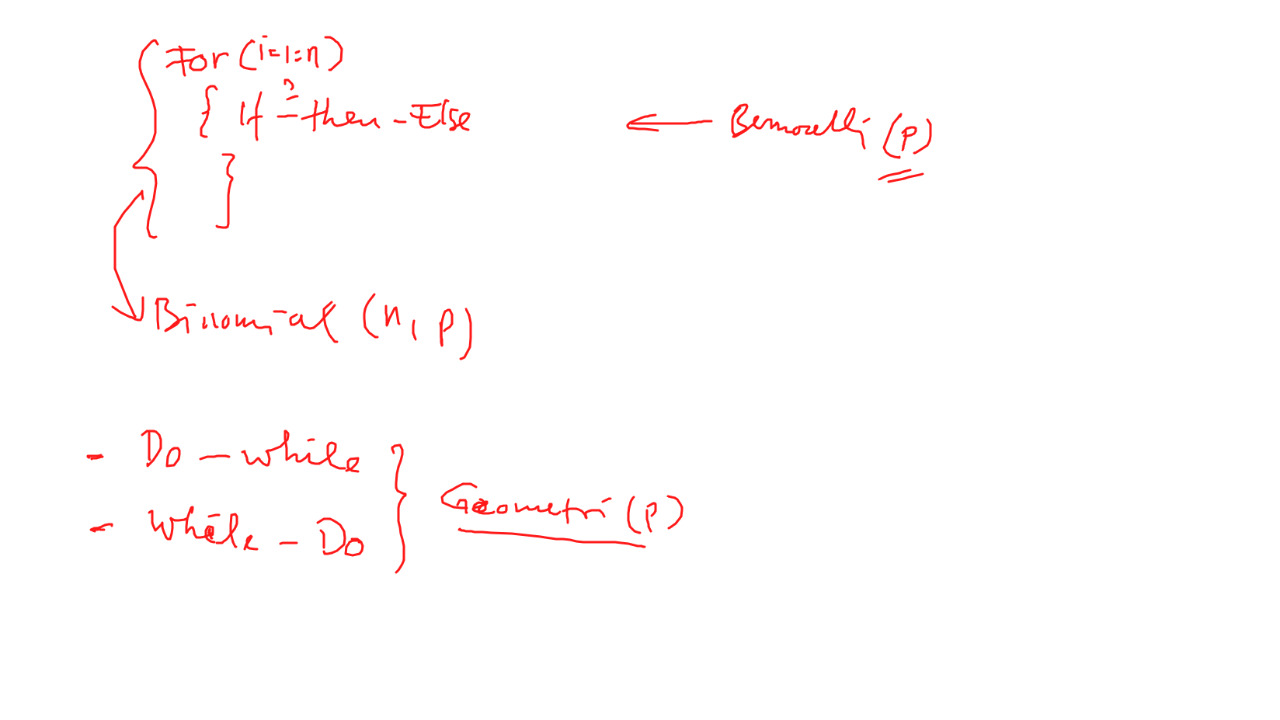 For (i=1:n)
{ If ? - then - Else ← Bernoulli (p)
}
Binomial (n, p)
- Do - while
- While - Do } Geometri (p)